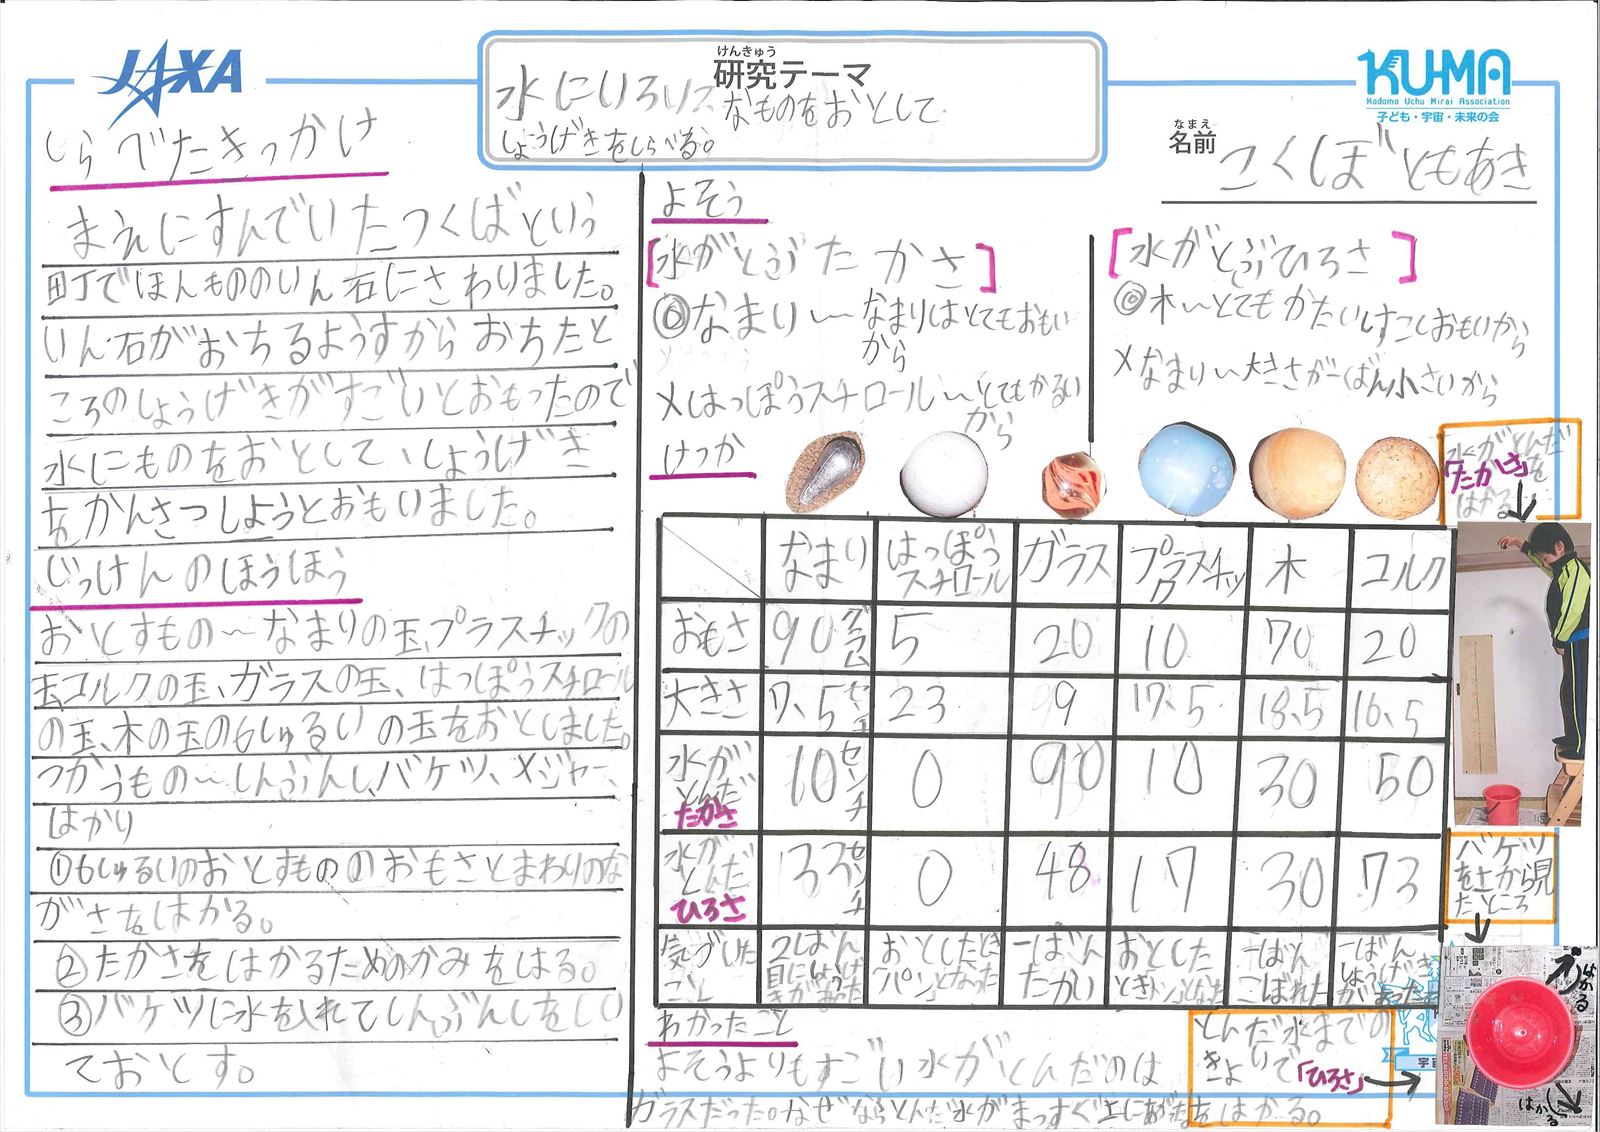 JAXA
けんきゅう
研究テーマ
水にいろいろなものをおとして
しょうげきをしらべる。
KU-MA
Kodomo Uchu Mirai Association
子ども・宇宙・未来の会
なまえ
名前
こくぼ ともあき
しらべたきっかけ
まえにすんでいたつくばという
町でほんもののいん石にさわりました。
いん石がおちるようすからおちたと
ころのしょうげきがすごいとおもったので
水にものをおとして、しょうげき
をかんさつしようとおもいました。
じっけんのほうほう
おとすもの〜なまりの玉、プラスチックの
玉、コルクの玉、ガラスの玉、はっぽうスチロール
の玉、木の玉の6しゅるいの玉をおとしました。
つかうもの〜しんぶんし、バケツ、メジャー、
はかり
①6しゅるいのおとすもののおもさとまわりのな
がさをはかる。
②たかさをはかるためのかみをはる。
③バケツに水を入れてしんぶんしをしい
ておとす。
よそう
[水がとぶたかさ]
◎なまり〜なまりはとてもおもい
から
×はっぽうスチロール〜とてもかるい
から
[水がとぶひろさ]
◎木〜とてもかたいしすこしおもいから
×なまり〜大きさが一ばん小さいから
けっか
水がとんだ
「たかさ」を
はかる。
なまり はっぽうスチロール ガラス プラスチック 木 コルク
おもさ 90グラム 5 20 10 70 20
大きさ 7.5センチ 23 9 17.5 18.5 16.5
水がとんだたかさ 10センチ 0 90 10 30 50
水がとんだひろさ 33センチ 0 48 17 30 73
気づいたこと 2ばん目にしょうげきが おとしたとき「パン」となった 一ばんたかい おとしたとき 一ばんこぼれた 一ばんしょうげきがあった
バケツ
をさから見
たところ
はかる
はかる
わかったこと
よそうよりもすごい水がとんだのは
ガラスだった。なぜならとんだ水がまっすぐ上にあがった
とんだ水までの
きょりで「ひろさ」
をはかる。
宇宙